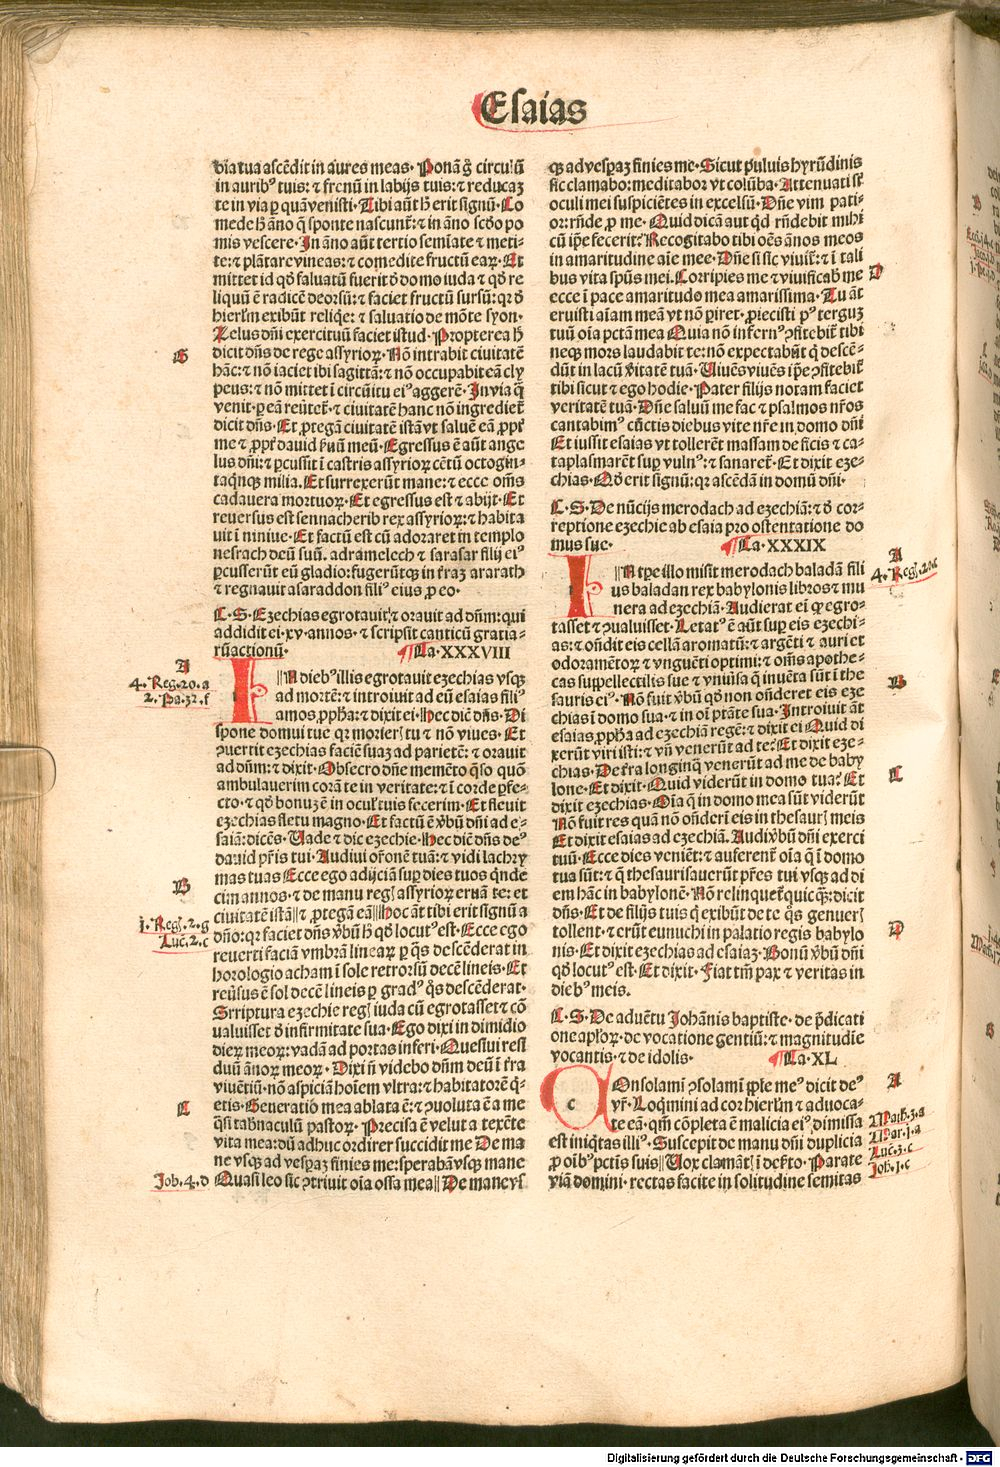 Esaias
bia tua ascēdit in aures meas. Ponā g̊ circulū
in aurib⁹ tuis: ⁊ frenū in labijs tuis: ⁊ reducaꝫ
te in via ꝑ quā venisti. Tibi aūt h̄ erit signū. Co
mede h̄ āno q̄ sponte nascunt᷑: ⁊ in āno scđo po
mis vescere. In āno aūt tertio semīate ⁊ meti-
te: ⁊ plātare vineas: ⁊ comedite fructū eaꝝ. Et
mittet id qđ saluatū fuerit đ domo iuda ⁊ qđ re
liquū ē radicē deorsū: ⁊ faciet fructū sursū: qꝛ đ
hierłm exibūt reliq̄e: ⁊ saluatio de mōte syon.
Zelus dn̄i exercituū faciet istud. Propterea h̄
G
dicit dn̄s de rege assyrioꝝ. Nō intrabit ciuitatē
hāc: ⁊ nō iaciet ibi sagittā: ⁊ nō occupabit eā cly
peus: ⁊ nō mittet ī circūitu ei⁹ aggerē. In via q̄
venit. ꝑ eā reu̇tet᷑. ⁊ ciuitatē hanc nō ingrediet᷑
dicit dn̄s. Et ꝓtegā ciuitatē istā vt saluē eā ꝓpt̄
me ⁊ ꝓpt̄ dauid ẜuū meū. Egressus ē aūt ange
lus dn̄i: ⁊ ꝑcussit ī castris assyrioꝝ cētū octogin-
taqn̄qꝫ milia. Et surrexerūt mane: ⁊ ecce om̄s
cadauera mortuoꝝ. Et egressus est ⁊ abijt. Et
reuersus est sennacherib rex assyrioꝝ: ⁊ habita
uit ī niniue. Et factū est cū adoraret in templo
nesrach deū suū. adramelech ⁊ sarasar filij ei⁹
ꝑcusserūt eū gladio: fugerūtqꝫ in t̄raꝫ ararath
⁊ regnauit asaraddon fili⁹ eius ꝓ eo.
C. S. Ezechias egrotauit ⁊ orauit ad dn̄m: qui
addidit ei .xv. annos. ⁊ scripsit canticū gratia-
rū actionū. Ca. XXXVIII
A
4. Reg. 20. a
2. Pa. 32. f
IN dieb⁹ illis egrotauit ezechias vsqꝫ
ad mortē: ⁊ introiuit ad eū esaias fili⁹
amos. ꝓpħa: ⁊ dixit ei. Hec dić dn̄s. Di
spone domui tue qꝛ morieř tu ⁊ nō viues. Et
ꝯuertit ezechias faciē suaꝫ ad parietē: ⁊ orauit
ad dn̄m: ⁊ dixit. Obsecro dn̄e memēto q̄so quō
ambulauerim corā te in veritate: ⁊ ī corde ꝑfe-
cto. ⁊ qđ bonuꝫ ē in ocul᷑ tuis fecerim. Et fleuit
ezechias fletu magno. Et factū ē v̇bū dn̄i ad e-
saiā: dicēs. Uade ⁊ dic ezechie. Hec dić dn̄s de⁹
dauid pr̄is tui. Audiui or̄onē tuā: ⁊ vidi lachry
mas tuas Ecce ego adijciā suꝑ dies tuos qn̄de
B
cim annos. ⁊ de manu regꝭ assyrioꝝ eruā te: et
ciuitatē istā ⁊ ꝓtegā eā. Hoc āt tibi erit signū a
j. Reg. 2. g
dn̄o: qꝛ faciet dn̄s v̇bū h̄ qđ locut⁹ est. Ecce ego
Luc̄. 2. c
reuerti faciā vmbrā lineaꝝ ꝑ q̄s descēderat in
horologio acham ī sole retrorsū decē lineis. Et
reu̇sus ē sol decē lineis ꝑ grad⁹ q̄s descēderat.
Srriptura ezechie regꝭ iuda cū egrotasset ⁊ cō
ualuisset đ infirmitate sua. Ego dixi in dimidio
dieꝝ meoꝝ: vadā ad portas inferi. Quesiui resi
duū ānoꝝ meoꝝ. Dixi n̄ videbo dn̄m deū ī t̄ra
viuētiū. nō aspiciā hoīem vltra: ⁊ habitatorē q̄-
C
etis. Generatio mea ablata ē: ⁊ ꝯuoluta ē a me
q̄si tab̄naculū pastoꝝ. Precisa ē velut a texēte
vita mea: dū adhuc ordirer succidit me De ma
ne vsqꝫ ad vesꝑaꝫ finies me: sperabā vsqꝫ mane
Job. 4. d
Quasi leo sic ꝯtriuit oīa ossa mea De mane vs
qꝫ ad vesꝑaꝫ finies me. Sicut pull᷑us hyrūdinis
sic clamabo: meditabor vt colūba. Attenuati st̄
oculi mei suspiciētes in excelsū. Dn̄e vim pati-
or: rn̄de ꝓ me. Quid dicā aut qđ rn̄debit mihi
cū ip̄e fecerit? Recogitabo tibi oēs ānos meos
in amaritudine aīe mee. Dn̄e si sic viuit᷑: ⁊ ī tali
bus vita spūs mei. Corripies me ⁊ viuificab̄ me
D
ecce ī pace amaritudo mea amarissima. Tu āt
eruisti aīam meā vt nō ꝑiret. ꝓiecisti p⁹ terguꝫ
tuū oīa pctā mea Quia nō infern⁹ ꝯfitebit᷑ tibi
neqꝫ mors laudabit te: nō expectabūt q̄ descē-
dūt in lacū v̇itatē tuā. Uiuēs viuēs ip̄e ꝯfitebit᷑
tibi sicut ⁊ ego hodie. Pater filijs notam faciet
veritatē tuā. Dn̄e saluū me fac ⁊ psalmos nr̄os
cantabim⁹ cūctis diebus vite nr̄e in domo dn̄i
Et iussit esaias vt tollerēt massam de ficis ⁊ ca-
taplasmarēt suꝑ vuln⁹: ⁊ sanaret᷑. Et dixit eze-
chias. Qđ erit signū: qꝛ ascēdā in domū dn̄i.
C. S. De nūcijs merodach ad ezechiā: ⁊ đ cor-
reptione ezechie ab esaia pro ostentatione do
mus sue. Ca. XXXIX
A
4. Reg. 20. c
IN tꝑe illo misit merodach baladā fili
us baladan rex babylonis libros ⁊ mu
nera ad ezechiā. Audierat ei qꝙ egro-
tasset ⁊ ꝯualuisset. Letat⁹ ē aūt suꝑ eis ezechi-
as: ⁊ on̄dit eis cellā aromatū: ⁊ argēti ⁊ auri et
odoramētoꝝ ⁊ vnguēti optimi: ⁊ om̄s apothe-
cas suꝑpellectilis sue ⁊ vniu̇sa q̄ inuēta sūt ī the
B
sauris ei⁹. Nō fuit v̇bū qđ non on̄deret eis eze
chias ī domo sua. ⁊ in oī ptāte sua. Introiuit āt
esaias ꝓpħa ad ezechiā regē: ⁊ dixit ei Quid di
xerūt viri isti: ⁊ vn̄ venerūt ad te? Et dixit eze-
chias. De t̄ra longinq̄ venerūt ad me de baby
C
lone. Et dixit. Quid viderūt in domo tua? Et
dixit ezechias. Oīa q̄ in domo mea sūt viderūt
Nō fuit res quā nō on̄deri eis in thesauꝛꝭ meis
Et dixit esaias ad ezechiā. Audi v̇bū dn̄i exerci
tuū. Ecce dies veniēt: ⁊ auferent᷑ oīa q̄ ī domo
tua sūt: ⁊ q̄ thesaurisauerūt pr̄es tui vsqꝫ ad di
em hāc in babylonē. Nō relinquet᷑ quicq̄ꝫ: dicit
dn̄s. Et de filijs tuis q̄ exibūt de te q̄s genueꝛꝭ
D
tollent. ⁊ erūt eunuchi in palatio regis babylo
nis. Et dixit ezechias ad esaiaꝫ. Bonū v̇bū dn̄i
qđ locut⁹ est. Et dixit. Fiat tm̄ pax ⁊ veritas in
dieb⁹ meis.
C. S. De aduētu Johānis baptiste. de p̄dicati
one apłoꝝ. de vocatione gentiū: ⁊ magnitudie
vocantis. ⁊ de idolis. Ca. XL
A
c
COnsolamī ꝯsolamī pple me⁹ dicit de⁹
vr̄. Loq̄mini ad cor hierłm ⁊ aduoca-
te eā. qm̄ cōpleta ē malicia ei⁹ dimissa
Math. 3. a
est iniq̄tas illi⁹. Suscepit de manu dn̄i duplicia
Mar. j. a
ꝓ oīb⁹ pctis̄ suis Uox clamātꝭ ī des̄to. Parate
Luc̄. 3. c
viā domini. rectas facite in solitudine semitas
Joh. j. c
Digitalisierung gefördert durch die Deutsche Forschungsgemeinschaft - DFG